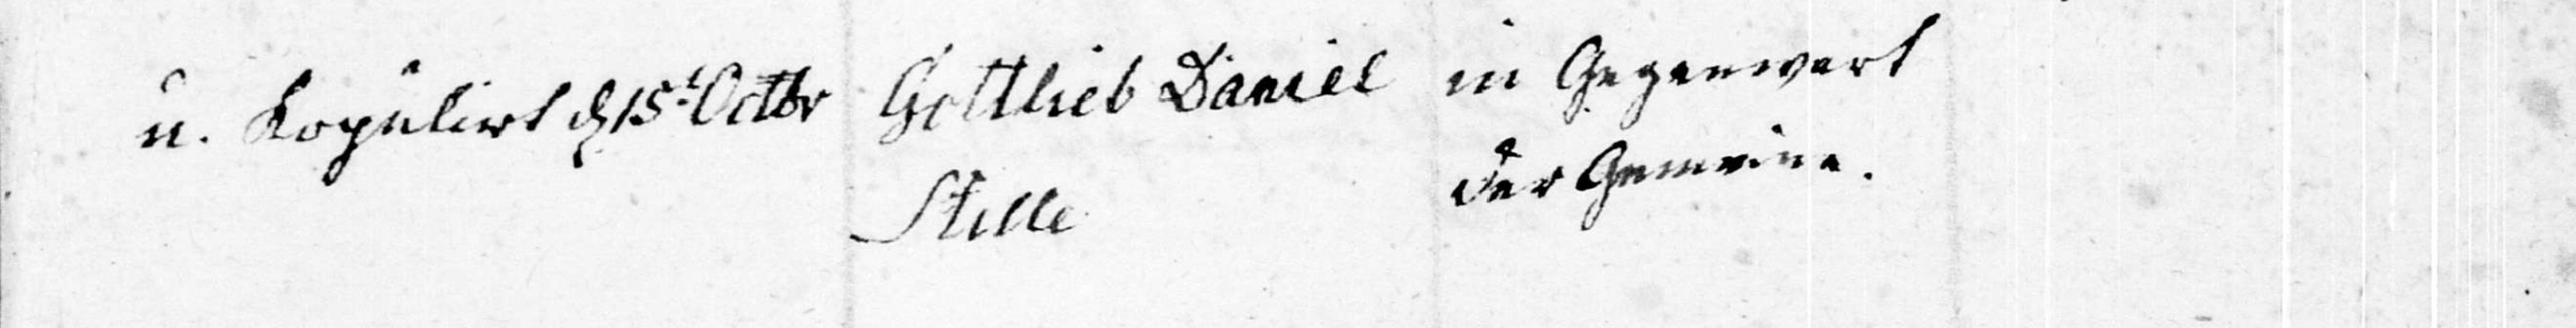 u. Kopulirt d 15t Octbr Gottlieb Daniel in Gegenwart
Stille der Gemeine.